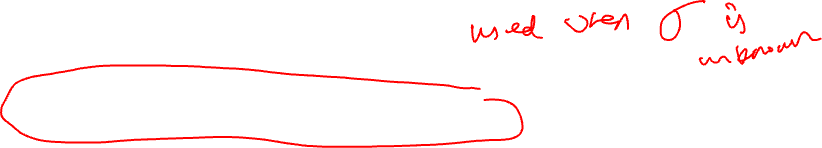 used when σ is
unknown